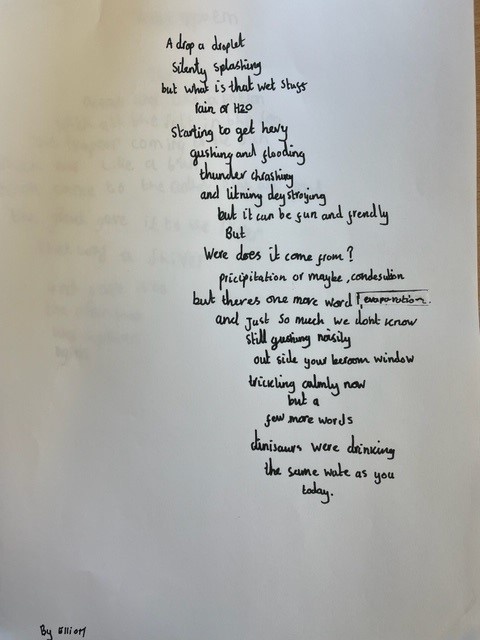 A drop a droplet
Silenty splashing
but what is that wet stuff
rain or H2O
Starting to get hevy
gushing and flooding
thunder chrashing
and litning deystroying
but it can be fun and frendly
But
Were does it come from?
pricipitation or maybe, condesation
but theres one more word evaporation.
and Just so much we dont know
still gushing noisily
out side your beroom window
trickling calmly now
but a
few more words
dinisaurs were drinking
the same wate as you
today.
By Elliott